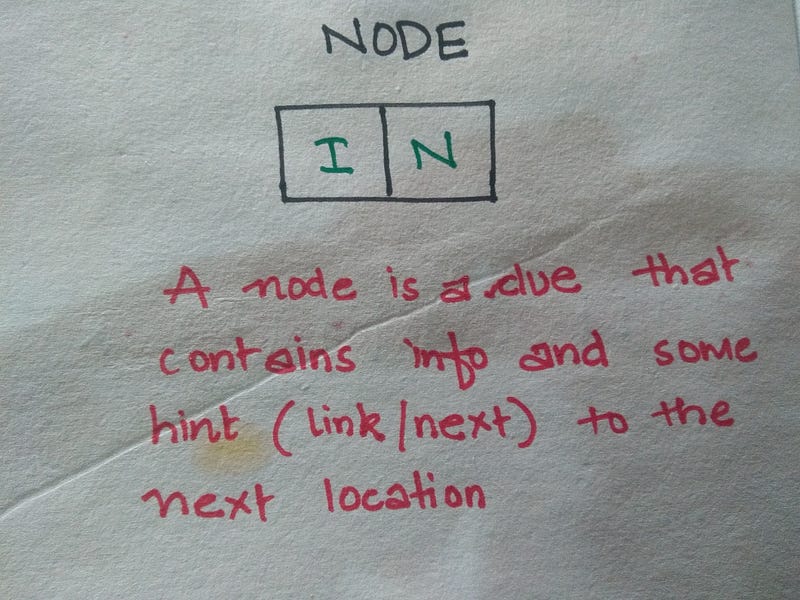 NODE
I N
A node is a clue that
contains info and some
hint (link/next) to the
next location